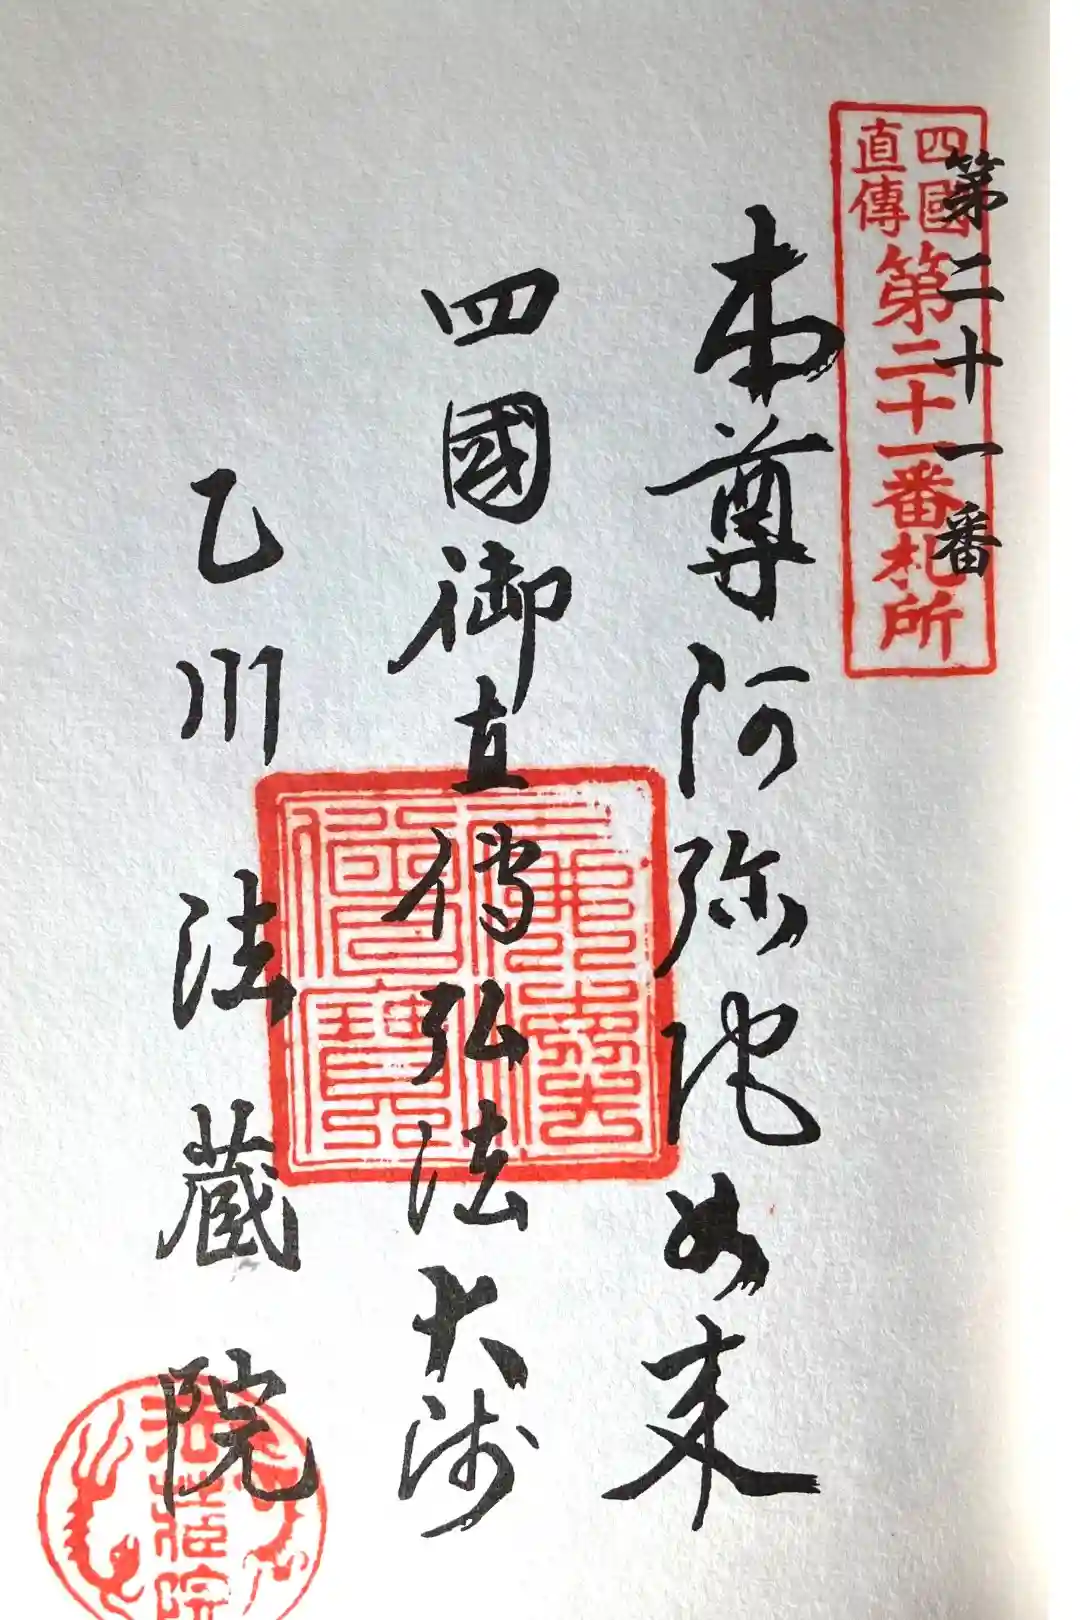 第二十一番
四國
直傳
第二十一番札所
本尊阿弥陀如来
四國御直傳弘法大師
乙川法蔵院
佛法僧寶
法蔵院